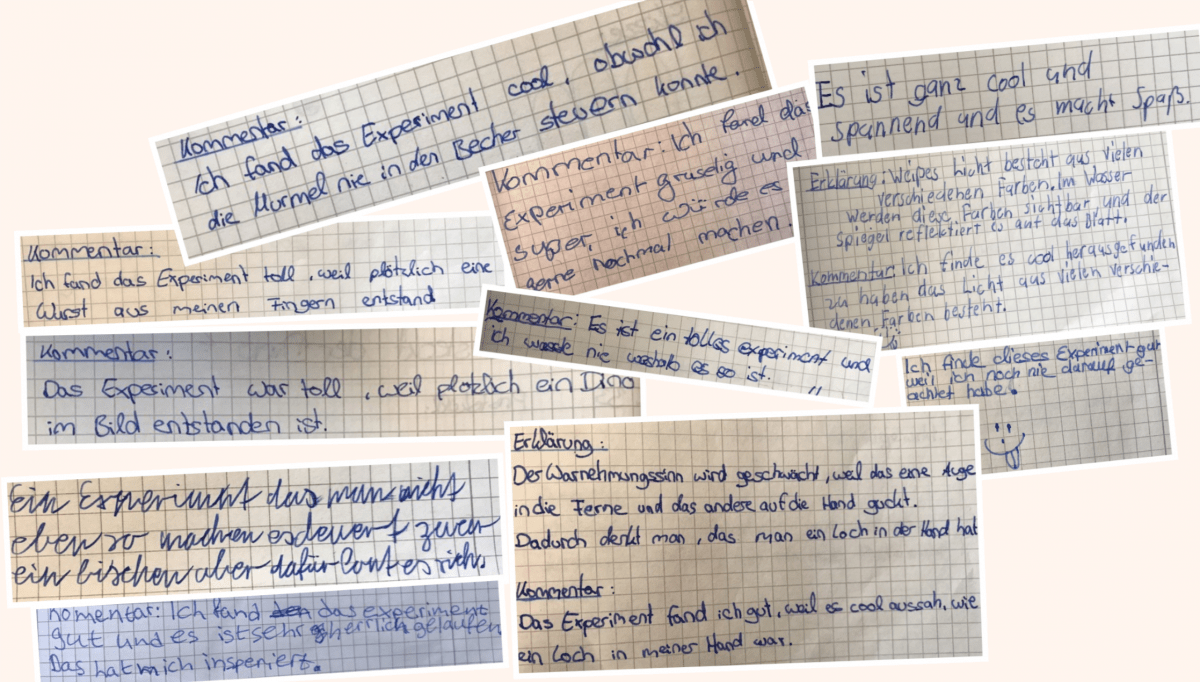 Kommentar:
Ich fand das Experiment cool, obwohl ich
die Murmel nie in den Becher steuern konnte.
Es ist ganz cool und
spannend und es macht Spaß.
Kommentar: Ich fand das
Experiment gruselig und
super, ich würde es
gerne nochmal machen.
Erklärung: Weißes Licht besteht aus vielen
verschiedenen Farben. Im Wasser
werden diese Farben sichtbar und der
Spiegel reflektiert es auf das Blatt.
Kommentar: Ich finde es cool herausgefunden
zu haben das Licht aus vielen verschie-
denen Farben besteht.
Kommentar:
Ich fand das Experiment toll, weil plötzlich eine
Wurst aus meinen Fingern entstand
Kommentar: Es ist ein tolles experiment und
ich nie weshalb es so ist.
Kommentar:
Das Experiment war toll, weil plötzlich ein Dino
im Bild entstanden ist.
Ich finde dieses Experiment gut
weil ich noch nie darauf ge-
achtet habe.
Erklärung:
Der Warnehmungssinn wird geschwächt, weil das eine Auge
in die Ferne und das andere auf die Hand guckt.
Dadurch denkt man, das man ein Loch in der Hand hat
Kommentar:
Das Experiment fand ich gut, weil es cool aussah, wie
ein Loch in meiner Hand war.
Ein Experiment das man nicht
eben so machen es dauert zwar
ein bischen aber dafür lont es sich.
Komentar: Ich fand das experiment
gut und es ist sehr herrlich gelaufen
Das hat mich inspeniert.